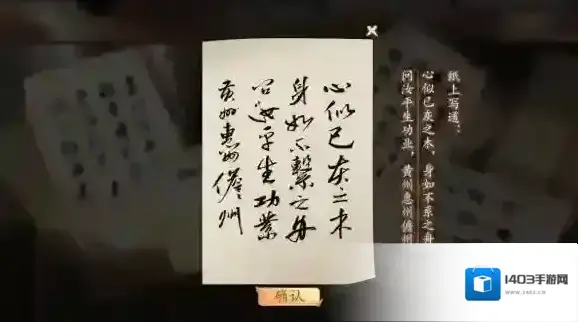 心似已灰之木
身如不繫之舟
问汝平生功业
黄州惠州儋州
纸上写道：
心似已灰之木，身如不系之舟
问汝平生功业，黄州惠州儋州
确认
1403手游网